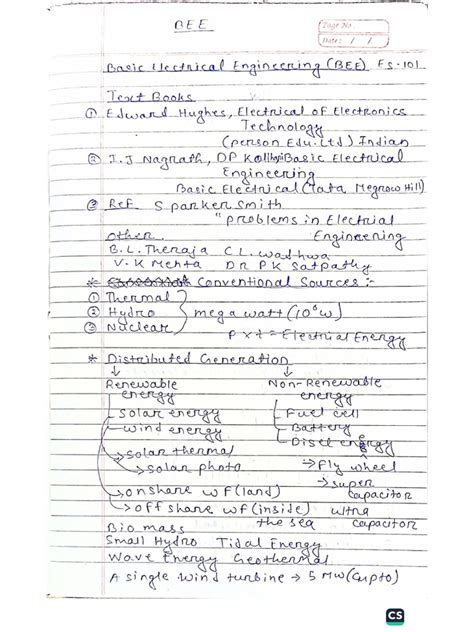 BEE
Page No.
Date: / /
Basic Electrical Engineering (BEE) ES-101
Text Books
① Edward Hughes, Electrical of Electronics
Technology
(person Edu. Ltd) Indian
② I.J Nagrath, DP Kothari Basic Electrical
Engineering
Basic Electrical (Tata, Megrow Hill)
③ Ref. S parker smith
"problems in Electrial
Engineering
other
B.L. Theraja C L. wadhwa
V.K Mehta DR PK Satpathy
* Conventional Sources :-
① Thermal
② Hydro } mega watt (10⁶w)
③ Nuclear
P x t = Electrial Energy
* Distributed Generation
↓ ↓
Renewable Non-Renewable
energy energy
Solar energy Fuel cell
wind energy Battery
solar thermal
solar photo Fly wheel
super
onshare wf (land) capacitor
off share wf (inside) ultra
the sea capacitor
Bio mass
Small Hydro Tidal Energy
Wave Energy Geothermal
A single wind turbine → 5 MW (Gupto)
CS